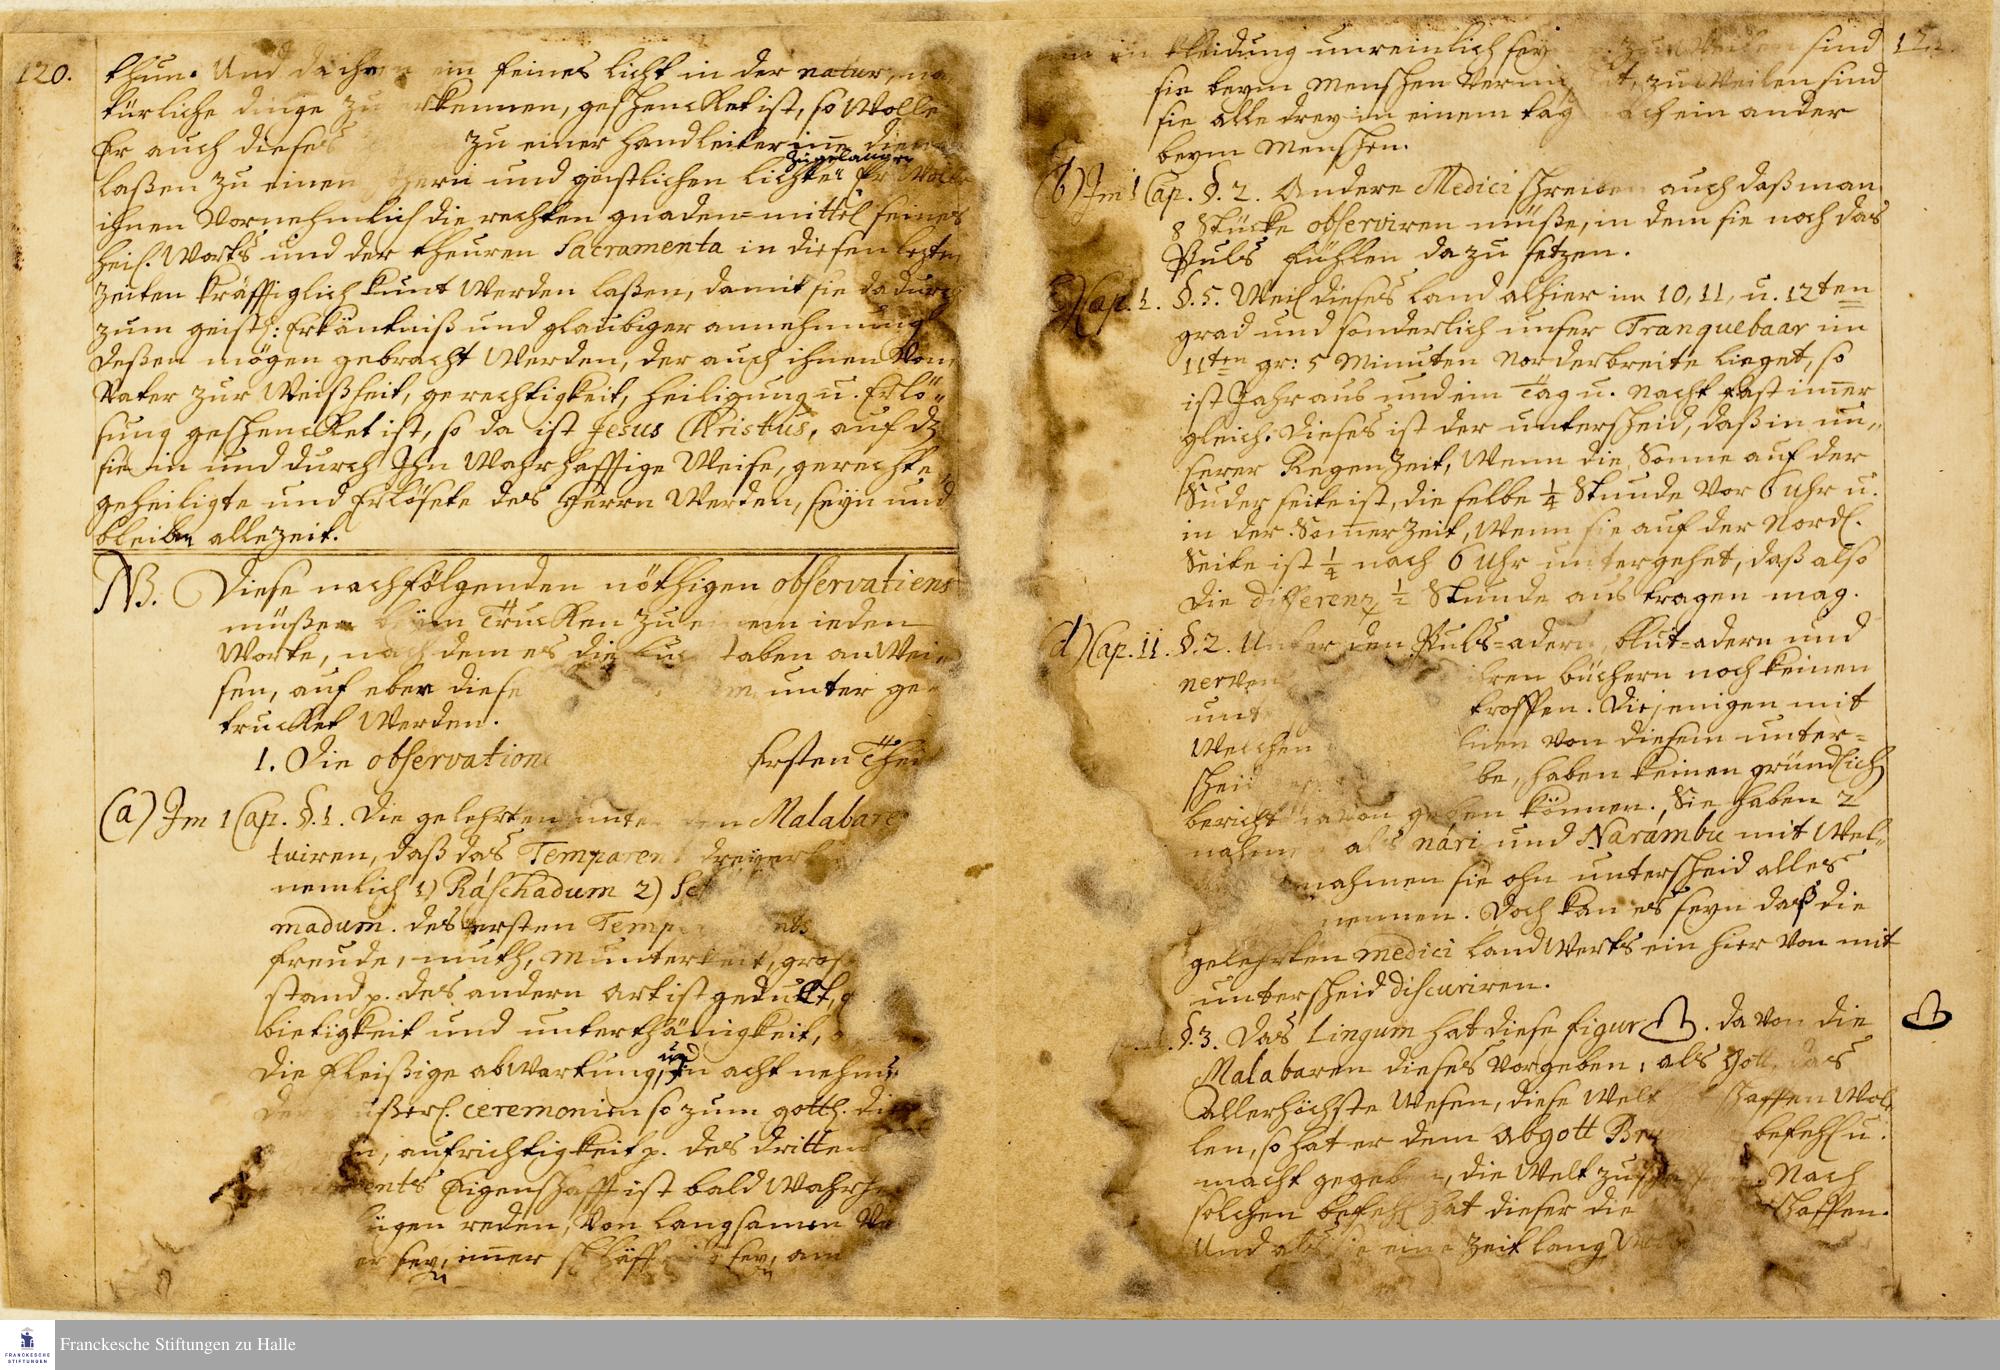 120.
thun. Und da ihnen ein feines licht in der natur, na
türliche dinge zu erkennen, geschencket ist, so Wolle
Er auch dieses zu einer handleiterin̅ dienen
zugelangen
laßen zu einem und geistlichen lichte Er Wolle
ihnen Vornehmlich die rechten gnaden=mittel seines
heil. Worts und der theuren Sacramenta in diesen lezten
Zeiten kräfftiglich kunt Werden laßen, damit sie dadurch
zum geistl: Erkäntniß und glaubiger annehmung
deßen mögen gebracht Werden, der auch ihnen Vom
Vater zur Weißheit, gerechtigkeit, heiligung u. Erlö=
sung geschencket ist, so da ist Jesus Christus, auf dz
sie in und durch Ihn Wahrhafftige Weise, gerechte,
geheiligte und Erlösete des Herrn Werden, seyn und
bleiben allezeit.
NB. Diese nachfolgenden nöthigen observationes
müßen beym Trucken zu einem ieden
Worte, nach dem es die buchstaben anWei=
sen, auf eben diese unter ge=
trucket Werden.
1. Die observationes Ersten Theil
(a) Im 1 Cap. §. 1. Die gelehrten unter den Malabaren
tuiren, daß das Temparent dreyerl
nemlich 1) Ráschadum 2)
madum. des ersten Temp ents
freude, muth, munterkeit, gros
stand p. des andern art ist gedult,
bietigkeit und unterthänigkeit,
und
die fleißige abWartung, in acht nehm
der äußerl. ceremonien so zum gottl. die
n, aufrichtigkeit p. des dritten
ents Eigenschafft ist bald Wahrhe
lügen reden, Von langsamen Ve
er sey, im̅er schläffrig sey, am
kleidung unreinlich sey sind
sie beym Menschen Vermi t, zuWeilen sind
sie alle drey in einem tag nach ein ander
beym Menschen.
(b) Im 1 Cap. §. 2. Andere Medici schreiben auch daß man
8 Stücke observiren müße, in dem sie noch das
Puls fühlen dazu setzen.
c) Cap. 1. §. 5. Weil dieses land alhier im 10, 11, u. 12ten
grad und sonderlich unser Tranquebaar im
11ten gr: 5 Minuten Norderbreite lieget, so
ist Jahr aus und ein Tag u. Nacht fast im̅er
gleich. Dieses ist der unterscheid, daß in un=
serer RegenZeit, Wenn die Sonne auf der
Suder seite ist, die selbe ¼ Stunde Vor 6 Uhr u.
in der Som̅erZeit, Wenn sie auf der Nordl.
Seite ist ¼ nach 6 Uhr untergehet, daß also
die differenz ½ Stunde aus tragen mag.
d) Cap. 11. §. 2. Unter den Puls=adern, blut=adern und
nerven ihren büchern noch keinen
unt troffen. Diejenigen mit
Welchen Von diesem unter=
scheid be, haben keinen gründlich
bericht davon geben können. Sie haben 2
nahmen als nári und Narámbu mit Wel=
nahmen sie ohn unterscheid alles
nennen. Doch kan es seyn daß die
gelehrten medici landWerts ein hier Von mit
unterscheid discuriren.
§. 3. Das Lingum hat diese figur . da Von die
Malabaren dieses Vorgeben, als Gott, das
allerhöchste Wesen, diese Welt schaffen Wol=
len, so hat er dem Abgott befehl u.
macht gegeben, die Welt zu Nach
solchen befehl hat dieser die schaffen.
Und als sie eine Zeit lang
Franckesche Stiftungen zu Halle
FRANCKESCHE
STIFTUNGEN